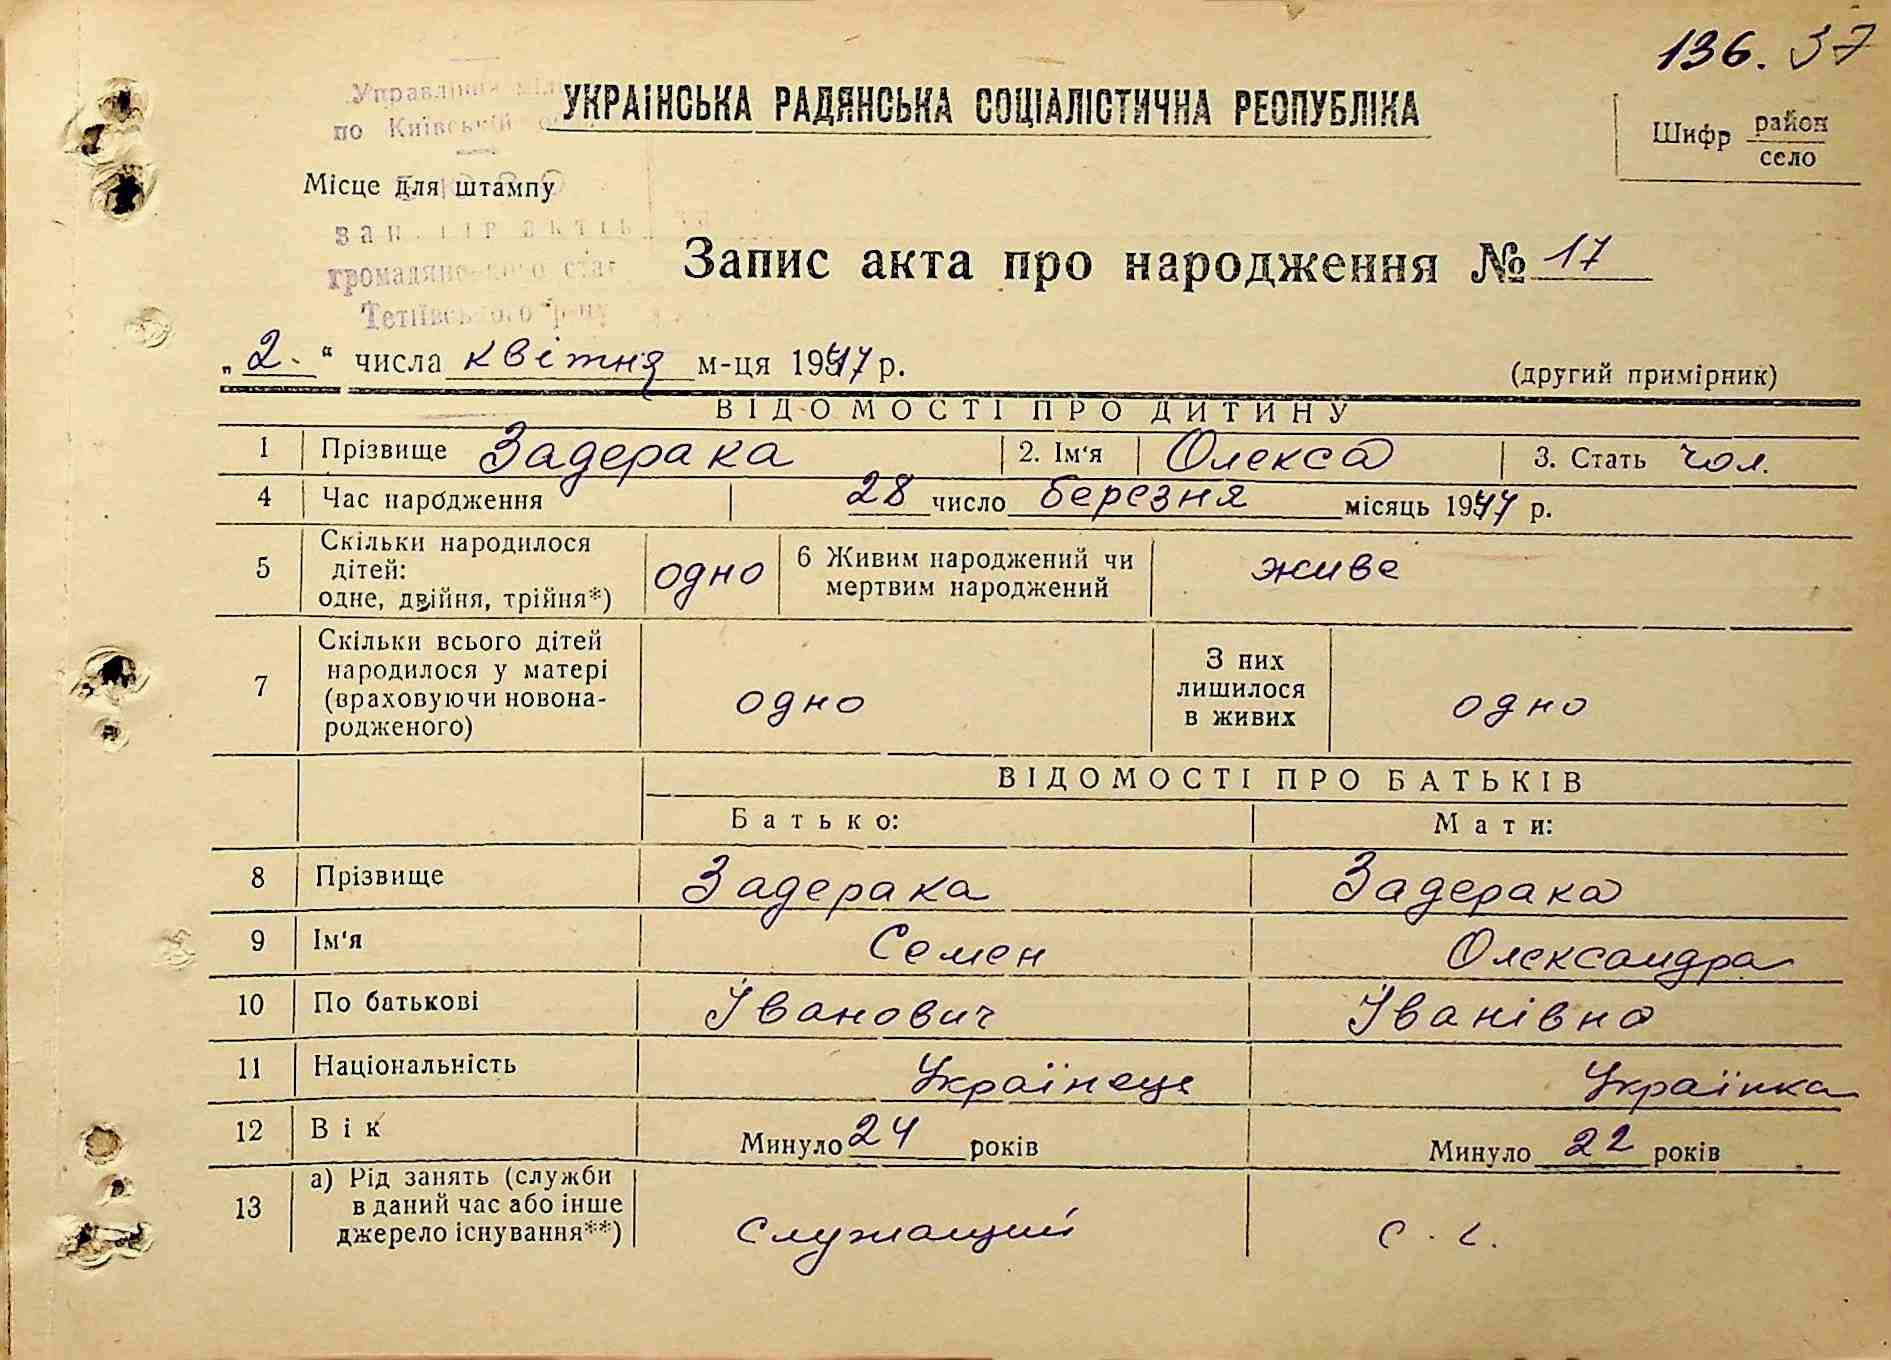 136. 37
УКРАЇНСЬКА РАДЯНСЬКА СОЦІАЛІСТИЧНА РЕСПУБЛІКА
Шифр район
село
Управління
по Київській
Місце для штампу
громадянського
Тетіївського р-ну
Запис акта про народження № 17
„2.“ числа квітня м-ця 1947 р.
(другий примірник)
ВІДОМОСТІ ПРО ДИТИНУ
1 Прізвище Задерака 2. Ім'я Олекса 3. Стать чол.
4 Час народження 28 число березня місяць 1947 р.
5 Скільки народилося дітей: одне, двійня, трійня*) одно 6 Живим народжений чи мертвим народжений живе
7 Скільки всього дітей народилося у матері (враховуючи новона-родженого) одно З них лишилося в живих одно
ВІДОМОСТІ ПРО БАТЬКІВ
Батько: Мати:
8 Прізвище Задерака Задерака
9 Ім'я Семен Олександра
10 По батькові Іванович Іванівна
11 Національність Українець Українка
12 Вік Минуло 24 років Минуло 22 років
13 а) Рід занять (служби в даний час або інше джерело існування**) Служащий с. г.